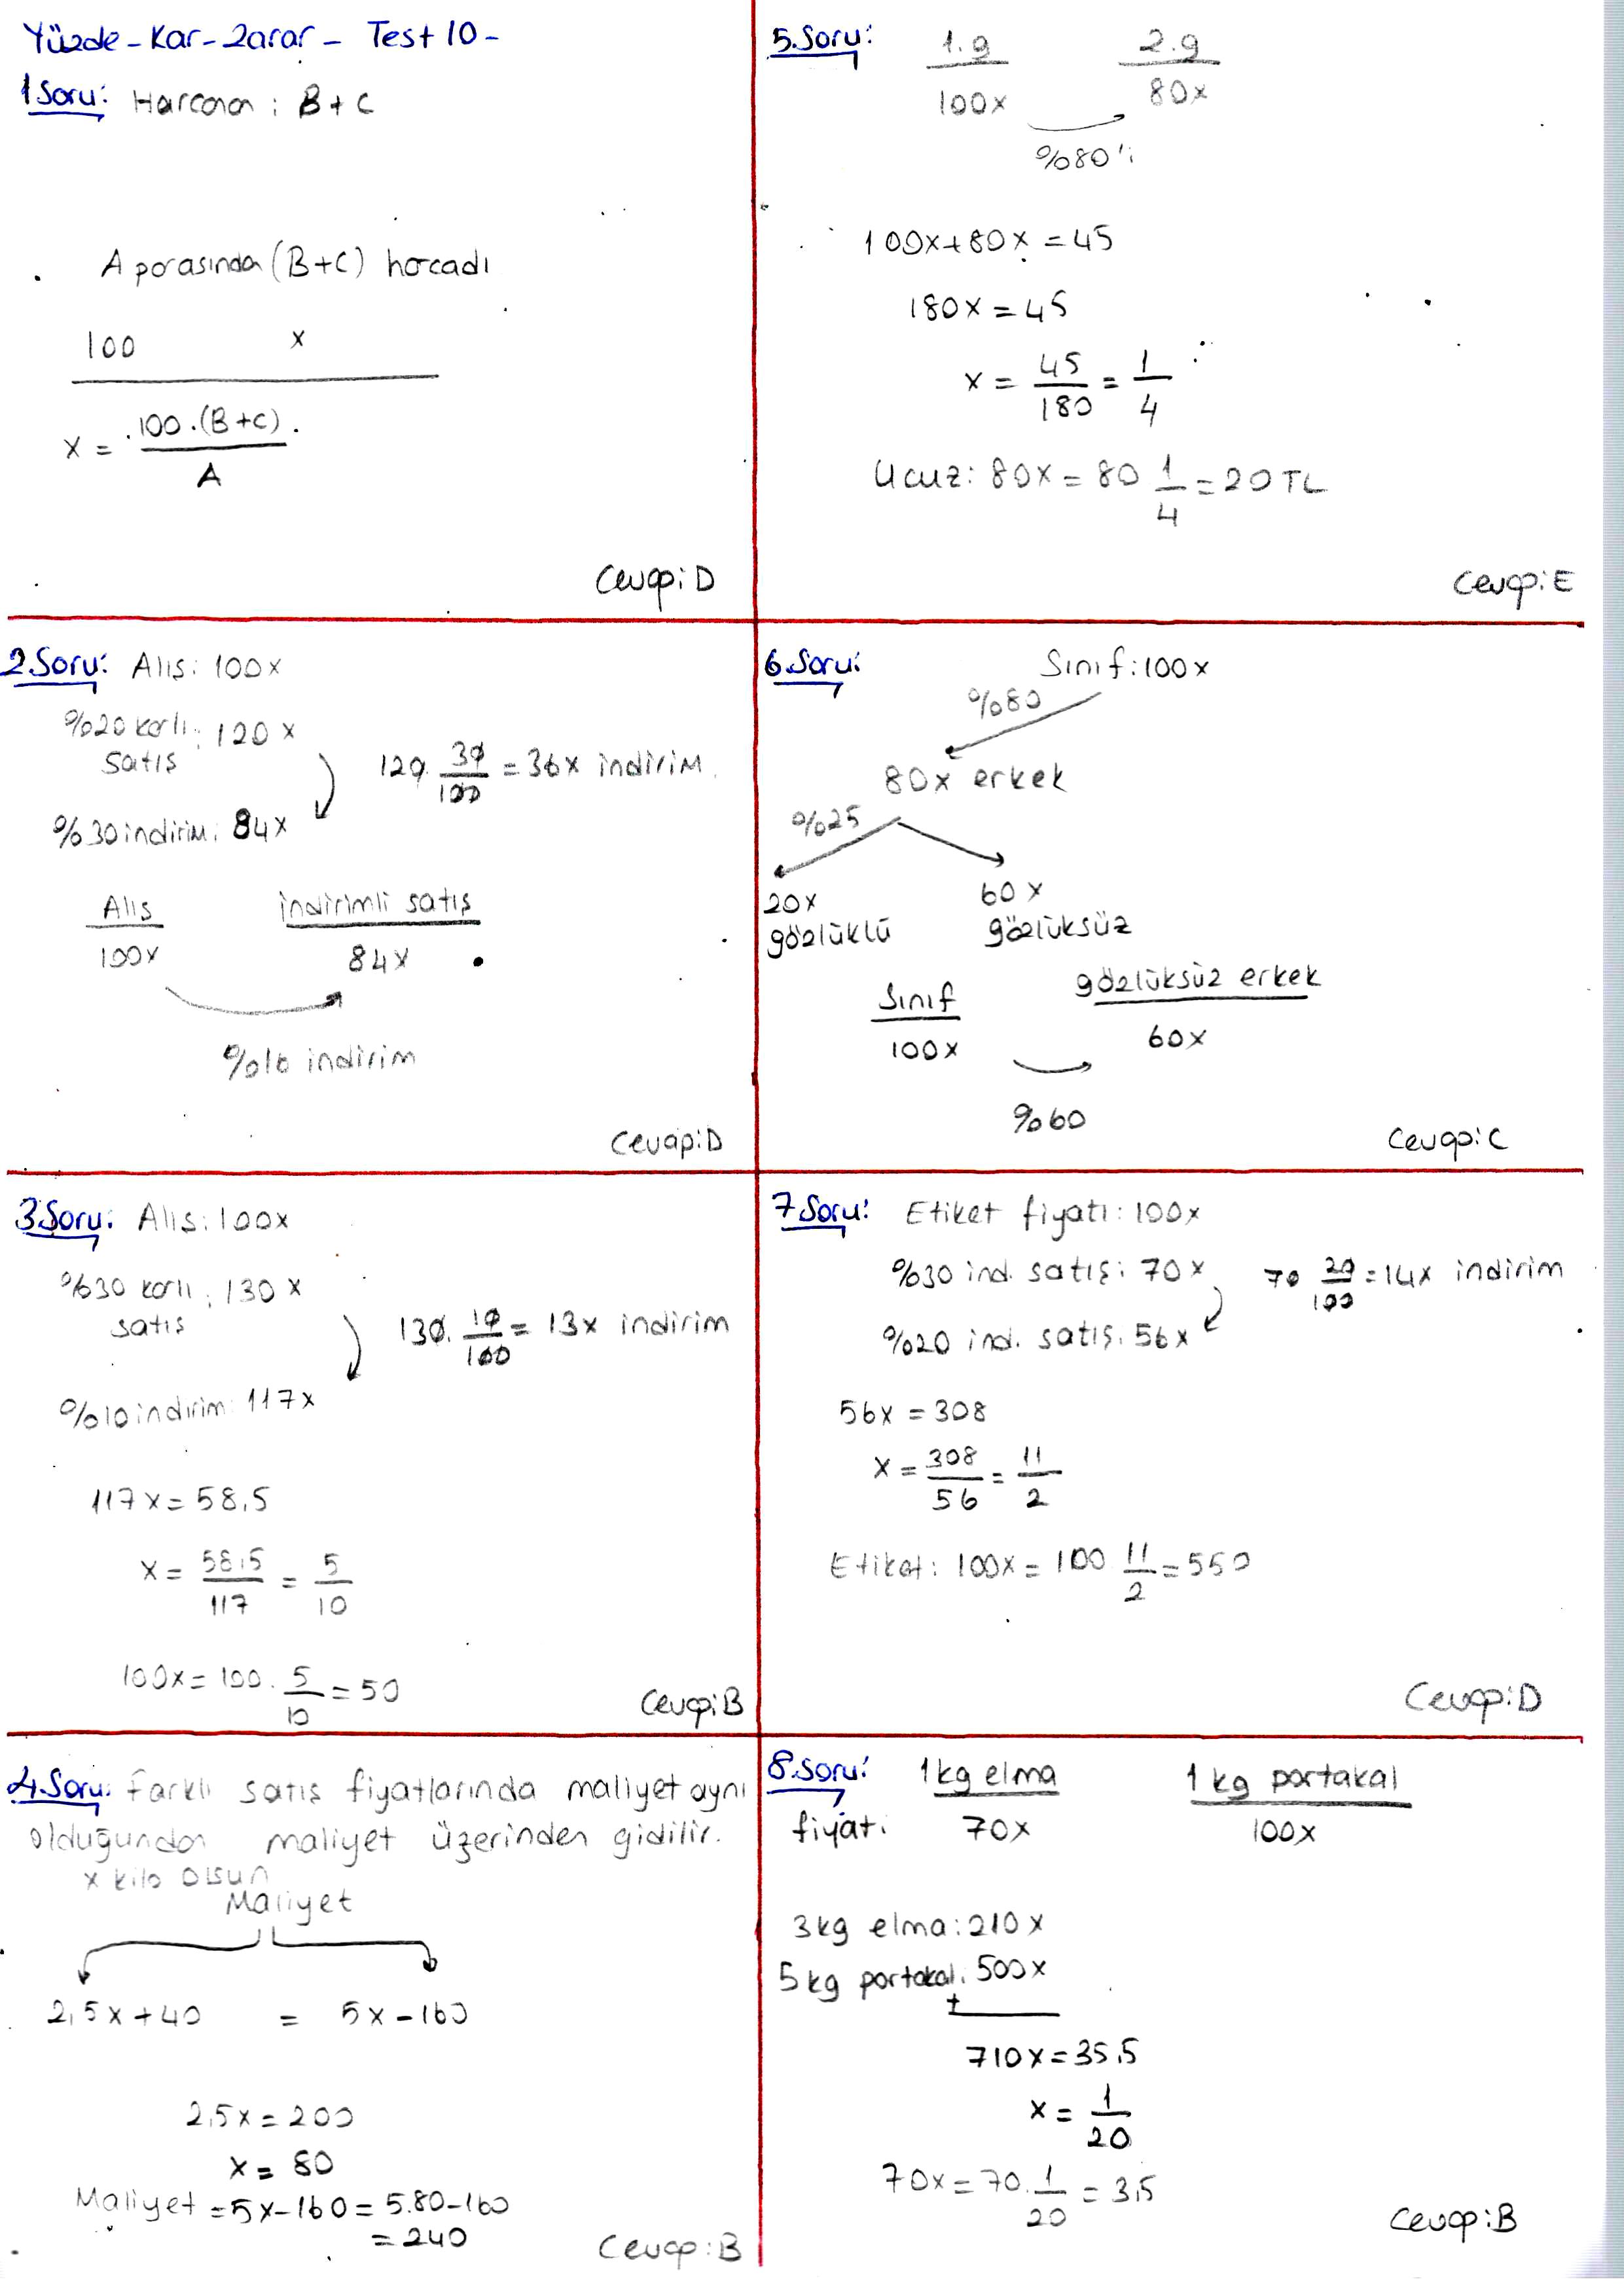 Yüzde - Kar - Zarar - Test 10 -
1.Soru: Harcanan : B + C
A parasından (B+C) harcadı
100 x
x = 100.(B+C)
A
Cevap: D
2.Soru: Alış: 100x
%20 karlı : 120x
satış
120. 30/100 = 36x indirim
%30 indirim: 84x
Alış indirimli satış
100x 84x
%16 indirim
Cevap: D
3.Soru: Alış: 100x
%30 karlı : 130x
satış
130. 10/100 = 13x indirim
%10 indirim: 117x
117x = 58,5
x = 58,5/117 = 5/10
100x = 100. 5/10 = 50
Cevap: B
4.Soru: Farklı satış fiyatlarında maliyet aynı
olduğundan maliyet üzerinden gidilir.
x kilo olsun
Maliyet
2,5x + 40 = 5x - 160
2,5x = 200
x = 80
Maliyet = 5x - 160 = 5.80 - 160
= 240
Cevap: B
5.Soru: 1.g 2.g
100x 80x
%80'i
100x + 80x = 45
180x = 45
x = 45/180 = 1/4
Ucuz: 80x = 80 1/4 = 20 TL
Cevap: E
6.Soru: Sınıf: 100x
%80
80x erkek
%25
20x 60x
gözlüklü gözlüksüz
Sınıf gözlüksüz erkek
100x 60x
%60
Cevap: C
7.Soru: Etiket fiyatı: 100x
%30 ind. satış: 70x
70 20/100 = 14x indirim
%20 ind. satış: 56x
56x = 308
x = 308/56 = 11/2
Etiket: 100x = 100 11/2 = 550
Cevap: D
8.Soru: 1 kg elma 1 kg portakal
fiyatı 70x 100x
3kg elma: 210x
5kg portakal: 500x
+
710x = 35,5
x = 1/20
70x = 70. 1/20 = 3,5
Cevap: B